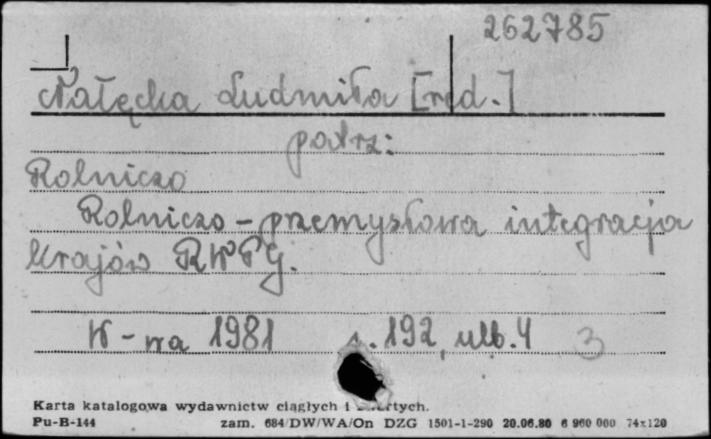 262785
Nałęcka Ludmiła [red.]
patrz:
Rolniczo
Rolniczo-przemysłowa integracja
krajów RWPG.
W-wa 1981 s. 192, ulb. 4 3
Karta katalogowa wydawnictw ciągłych i zwartych.
Pu-B-144 zam. 684/DW/WA/On DZG 1501-1-290 20.06.80 6 960 000 74x120